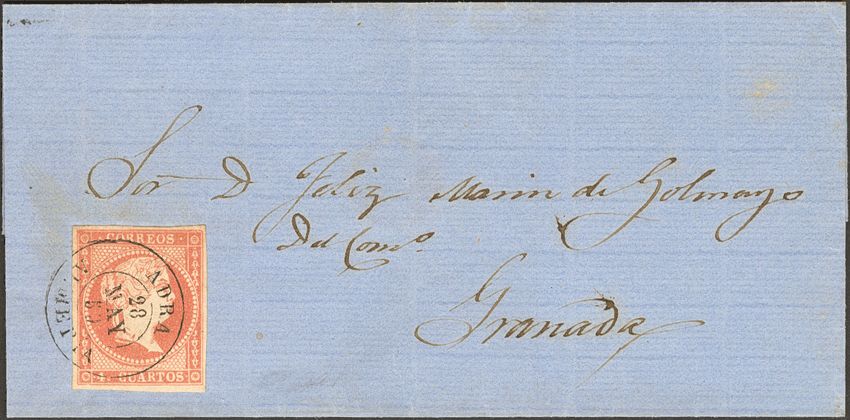 Sor D Feliz Marin de Golmayo
Del Como.
Granada
CORREOS
ADRA
28
MAY
4 CUARTOS